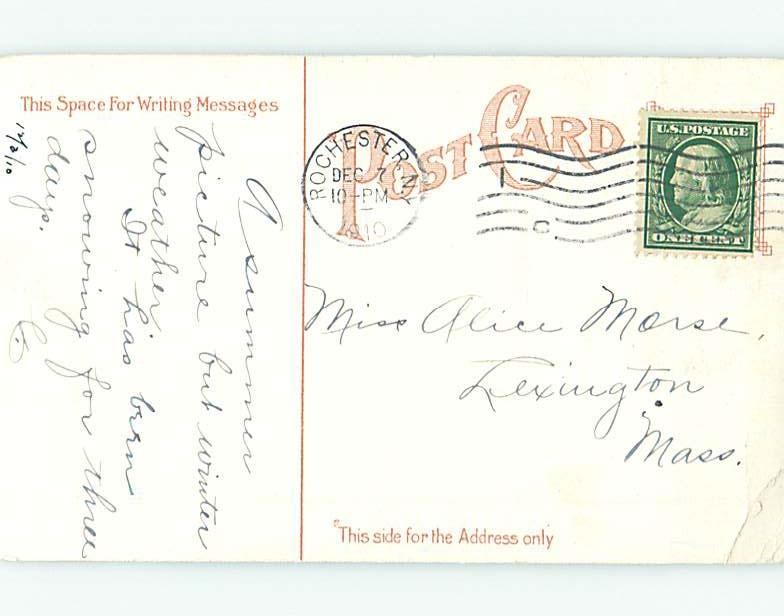 This Space For Writing Messages
12/7/10
A summer
picture but winter
weather.
It has been
snowing for three
days.
C.
POST CARD
ROCHESTER N.Y.
DEC 7
10-PM
1910
1
C
U.S. POSTAGE
ONE CENT
Miss Alice Morse,
Lexington
Mass.
This side for the Address only